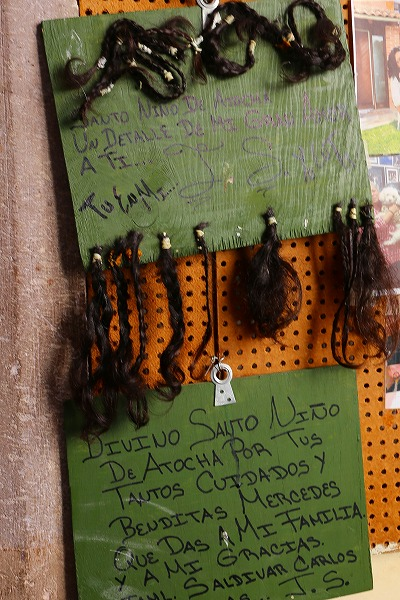 SANTO NIÑO DE ATOCHA
UN DETALLE DE MI
A TI...
TU EN MI...
DIVINO SANTO NIÑO
DE ATOCHA POR TUS
TANTOS CUIDADOS Y
BENDITAS MERCEDES
QUE DAS A MI FAMILIA
Y A MI GRACIAS.
SALDIVAR CARLOS
J. S.